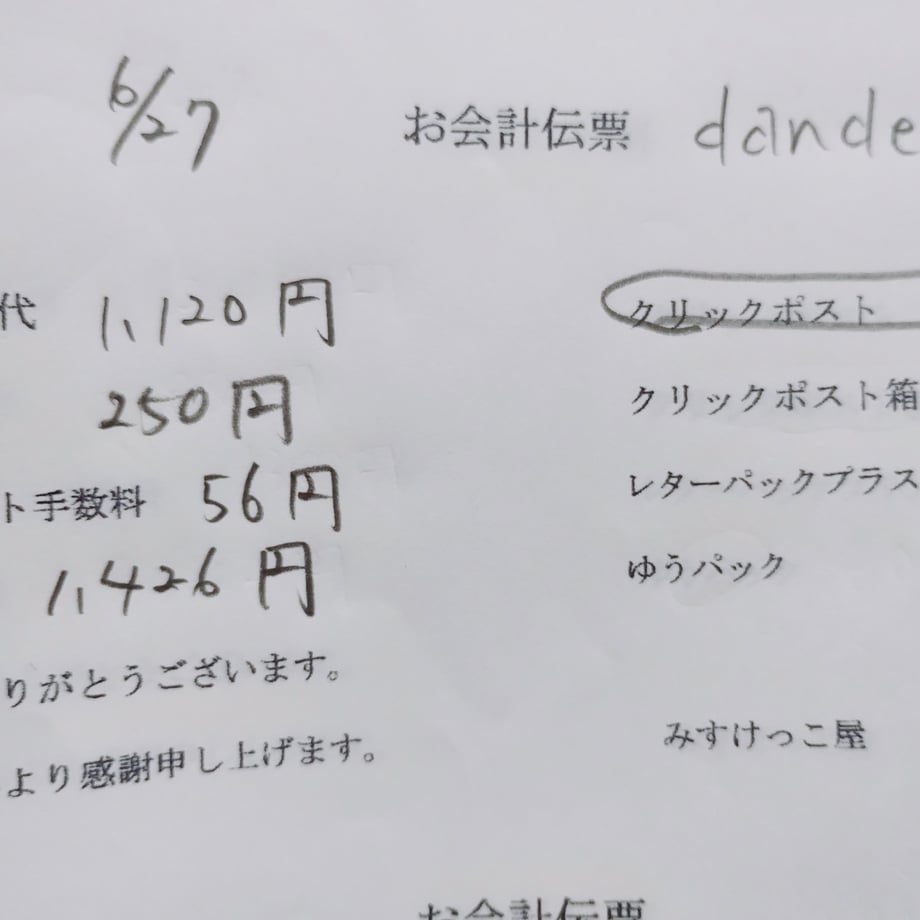 6/27 お会計伝票 dande
代 1,120円 クリックポスト
250円 クリックポスト箱
ト手数料 56円 レターパックプラス
1,426円 ゆうパック
りがとうございます。
より感謝申し上げます。 みすけっこ屋
お会計伝票